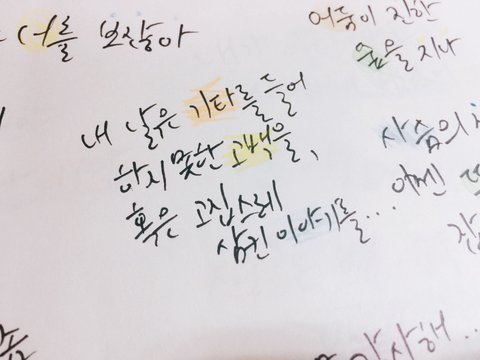 너를 보잖아
어둠이 진한
숲을 지나
내 낡은 기타를 들어
하지 못한 고백을,
혹은 고집스레
삼킨 이야기를...
사슴의